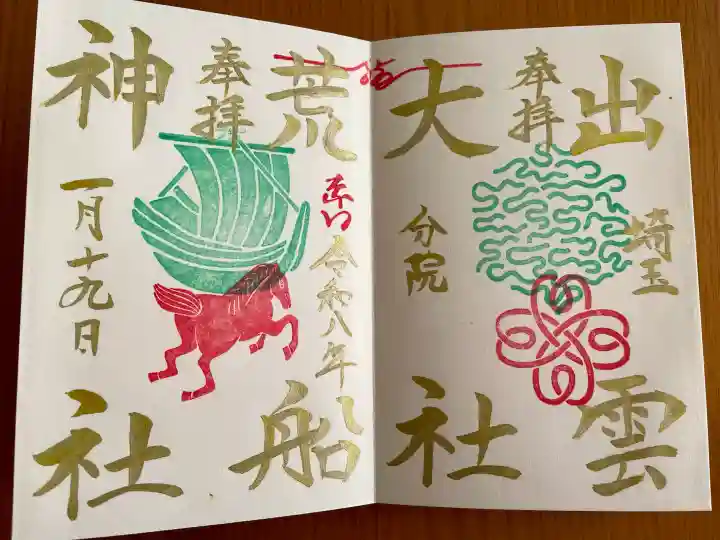 出雲
奉拝
埼玉
分院
大社
荒船
奉拝
令和八年
神社
一月十九日